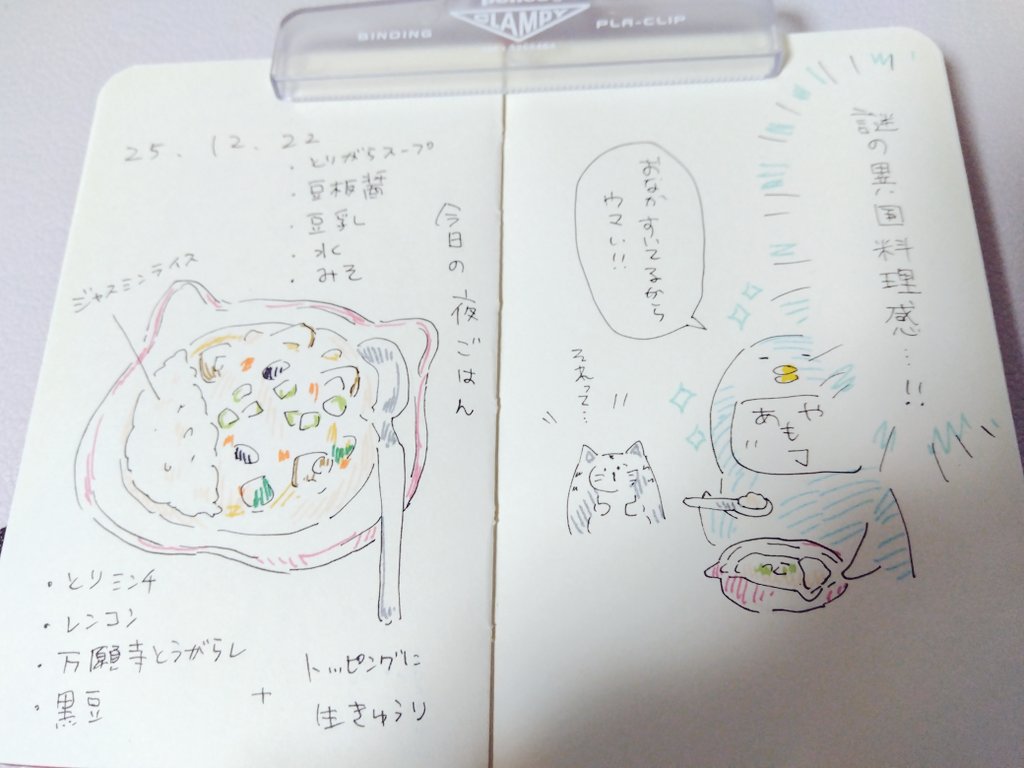 BINDING
CLAMPY
PLA-CLIP
25.12.22
・とりがらスープ
・豆板醤
・豆乳
・水
・みそ
今日の夜ごはん
ジャスミンライス
・とりミンチ
・レンコン
・万願寺とうがらし
・黒豆
+
トッピングに
生きゅうり
謎の異国料理感…!!
おなかすいてるから
ウマい!!
それって…